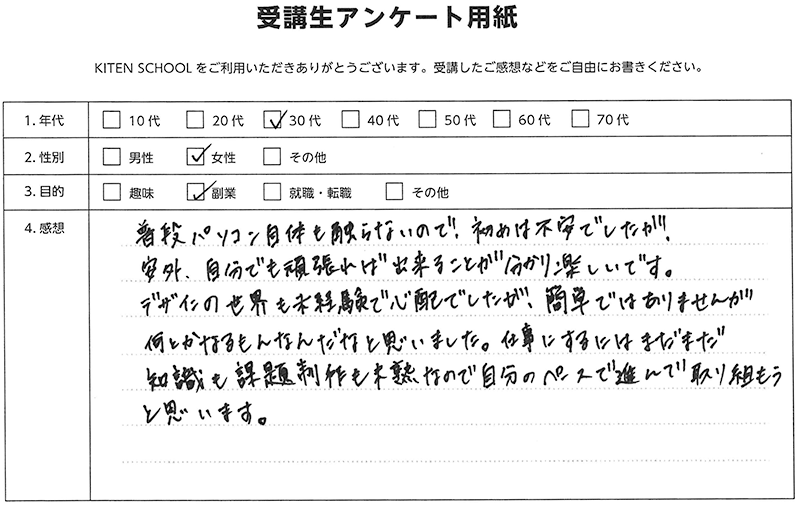 受講生アンケート用紙
KITEN SCHOOL をご利用いただきありがとうございます。受講したご感想などをご自由にお書きください。
1. 年代 10 代 20 代 30 代 40 代 50 代 60 代 70 代
2. 性別 男性 女性 その他
3. 目的 趣味 副業 就職・転職 その他
4. 感想
普段パソコン自体も触らないので、初めは不安でしたが、
案外、自分でも頑張れば出来ることが分かり楽しいです。
デザインの世界も未経験で心配でしたが、簡単ではありませんが
何とかなるもんなんだなと思いました。仕事にするにはまだまだ
知識も課題制作も未熟なので自分のペースで進んで取り組もう
と思います。